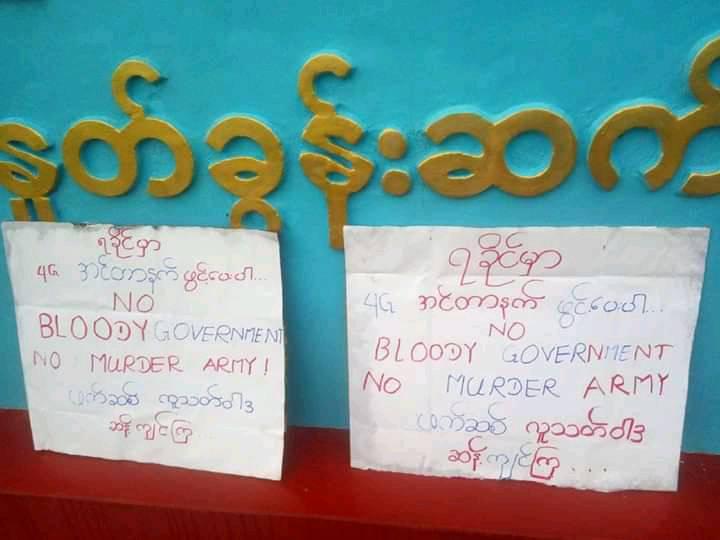 နှုတ်ခွန်းဆက်
ရခိုင်မှာ
4G အင်တာနက် ဖွင့်ပေးပါ...
NO
BLOODY GOVERNMENT
NO MURDER ARMY!
ဖက်ဆစ် လူသတ်ဝါဒ
ဆန့်ကျင်ကြ
ရခိုင်မှာ
4G အင်တာနက် ဖွင့်ပေးပါ...
NO
BLOODY GOVERNMENT
NO MURDER ARMY
ဖက်ဆစ် လူသတ်ဝါဒ
ဆန့်ကျင်ကြ....